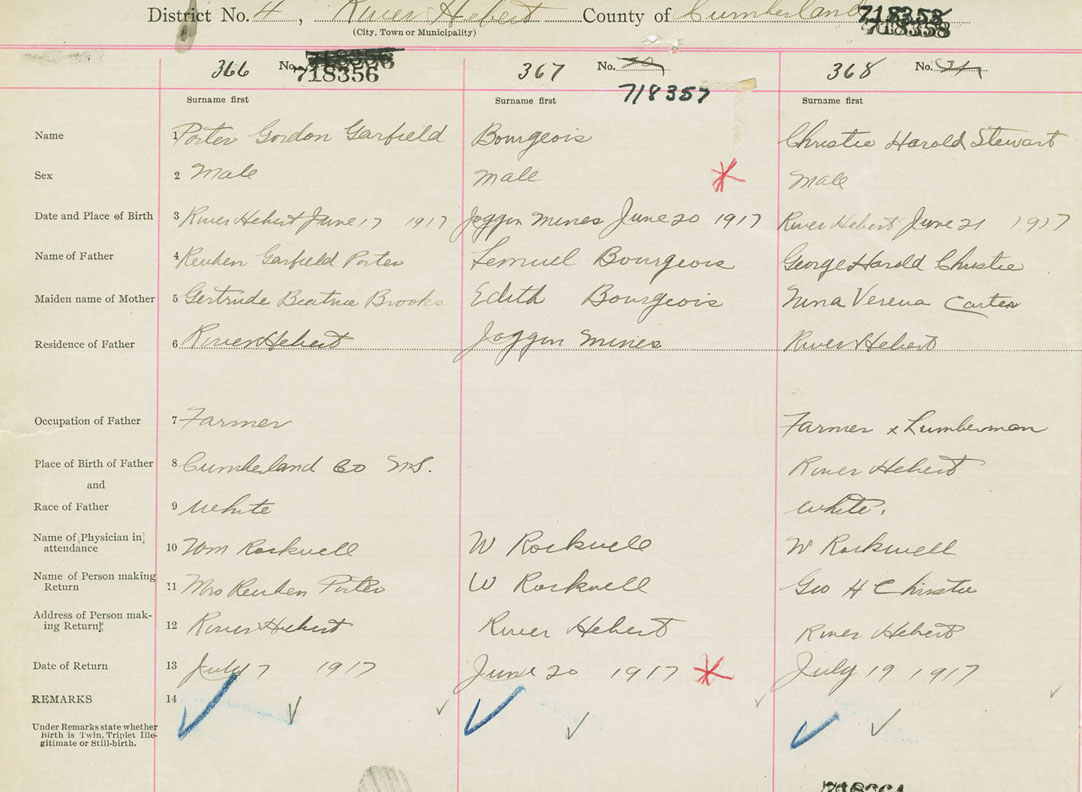 District No. 4, River Hebert County of Cumberland 718358
(City, Town or Municipality) 718358
366 No. 718356 367 No. 70 368 No. 71
718356 718357
Surname first Surname first Surname first
Name 1 Porter Gordon Garfield Bourgeois Christie Harold Stewart
Sex 2 Male Male Male
Date and Place of Birth 3 River Hebert June 17 1917 Joggin Mines June 20 1917 River Hebert June 21 1917
Name of Father 4 Reuben Garfield Porter Lemuel Bourgeois George Harold Christie
Maiden name of Mother 5 Gertrude Beatrice Brooks Edith Bourgeois Nina Verena Carter
Residence of Father 6 River Hebert Joggin Mines River Hebert
Occupation of Father 7 Farmer Farmer x Lumberman
Place of Birth of Father 8 Cumberland Co N.S. River Hebert
and
Race of Father 9 White White.
Name of [Physician in]
attendance 10 Wm Rockwell W Rockwell W Rockwell
Name of Person making
Return 11 Mrs Reuben Porter W Rockwell Geo H Christie
Address of Person mak-
ing Return 12 River Hebert River Hebert River Hebert
Date of Return 13 July 7 1917 June 20 1917 July 19 1917
REMARKS 14
Under Remarks state whether
Birth is Twin, Triplet Ille-
gitimate or Still-birth.